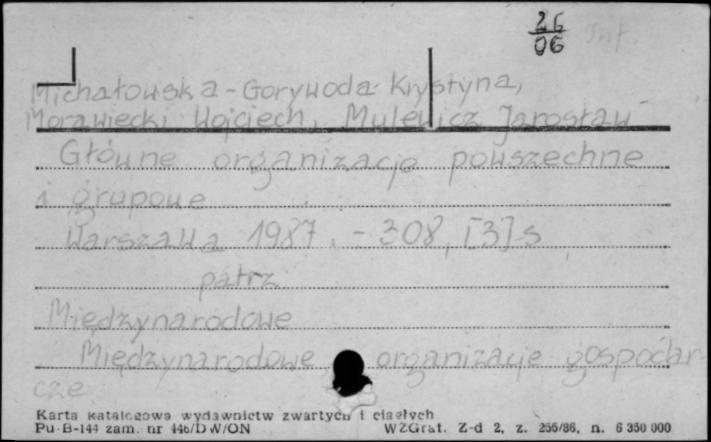 26
06 Inf.
Michałowska-Gorywoda Krystyna,
Morawiecki Wojciech, Mulewicz Jarosław
Główne organizacje powszechne
i grupowe
Warszawa 1987. - 308, [3] s
patrz
Międzynarodowe
Międzynarodowe organizacje gospodar
cze
Karta katalogowa wydawnictw zwartych i ciągłych
Pu-B-144 zam. nr 446/DW/ON WZGraf. Z-d 2, z. 255/86, n. 6 350 000